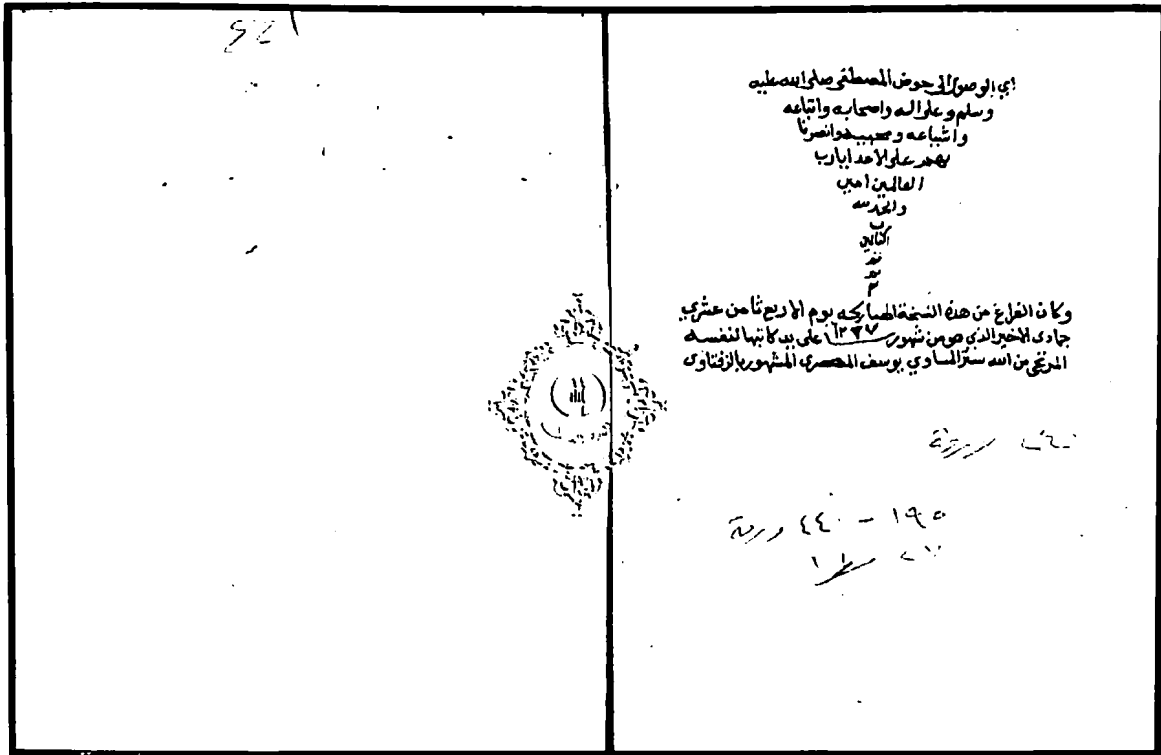 اي الوصول الى حوض المصطفى صلى الله عليه
وسلم وعلى اله واصحابه واتباعه
واشياعه ومحبيه وانصرنا
بهم على الاعدا يارب
العالمين امين
والحمد لله
رب
العالمين
وكان الفراغ من هذه النسخة المباركه يوم الاربع ثامن عشري
جمادى الاخير الذي هو من شهور ١٢٣٧ على يد كاتبها لنفسه
المرتجى من الله ستر المساوي يوسف المصرى المشهور بالزفتاوى
١٩٥ - ٤٤٠ ورقة